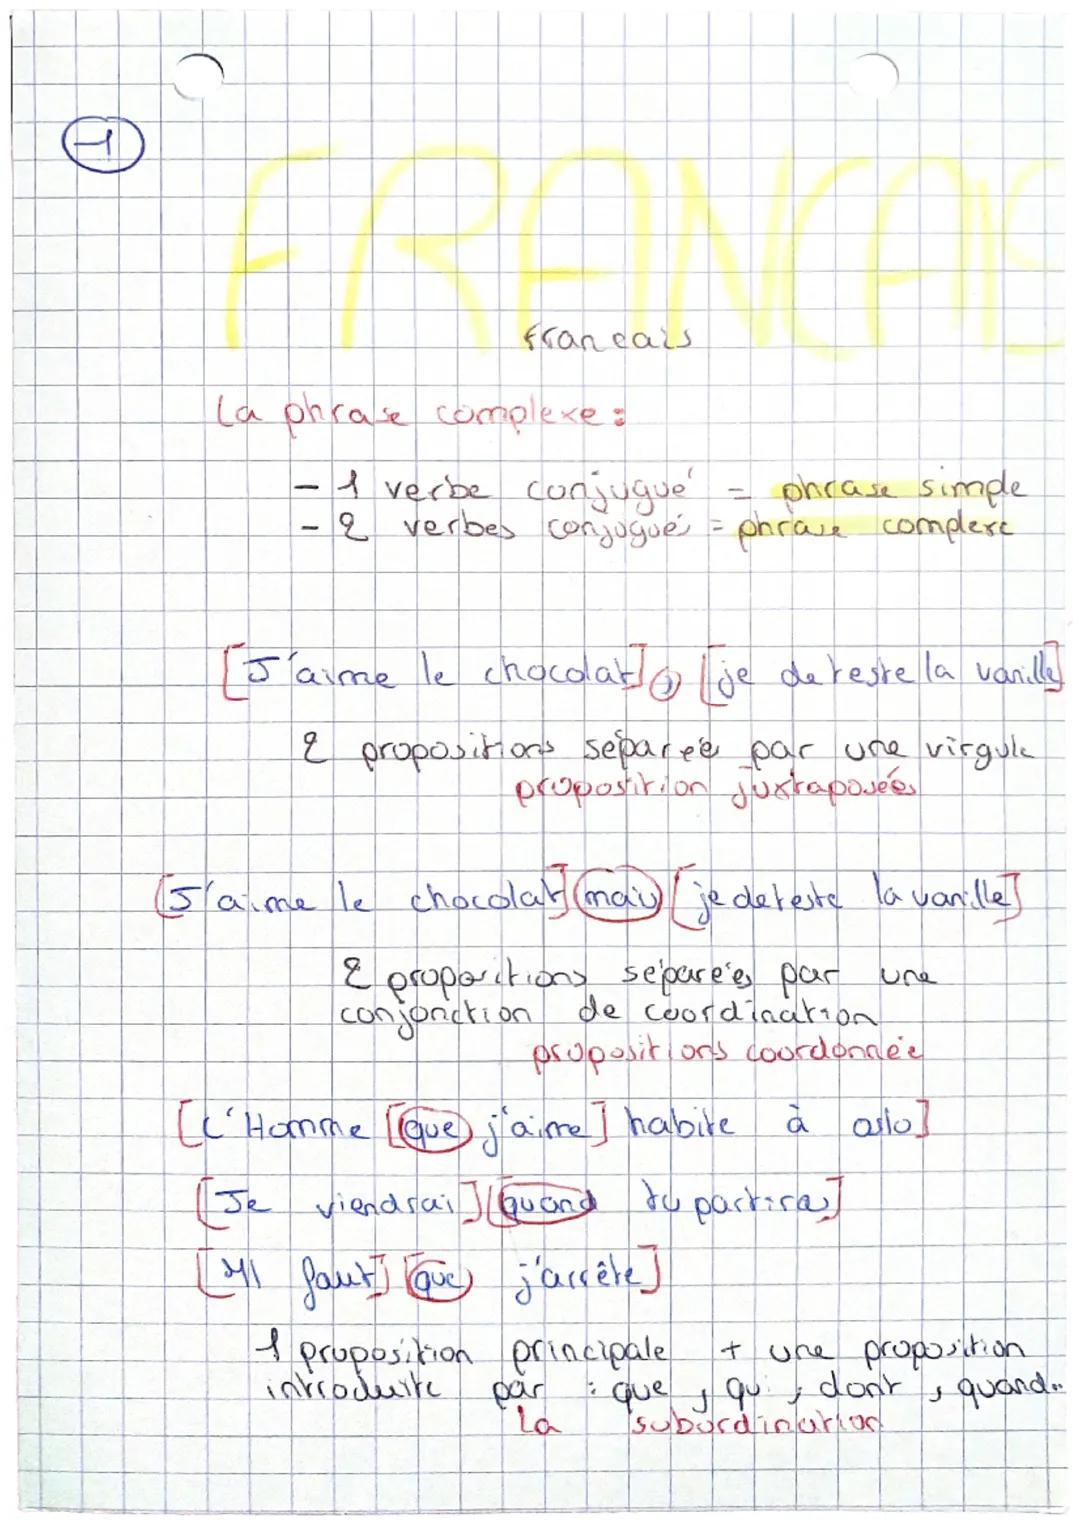 1
FRANCAIS
francais
La phrase complexe :
- 1 verbe conjugué = phrase simple
- 2 verbes conjugué = phrase complexe
[J'aime le chocolat] , [je deteste la vanille]
2 propositions séparée par une virgule
proposition juxtaposées
[J'aime le chocolat] mais [je deteste la vanille]
2 propositions séparées par une
conjonction de coordination
propositions coordonnée
[L'Homme [que j'aime] habite à oslo]
[Je viendrai] [quand tu partiras]
[Il faut] [que j'arrête]
1 proposition principale + une proposition
introduite par : que , qui , dont , quand..
La subordination